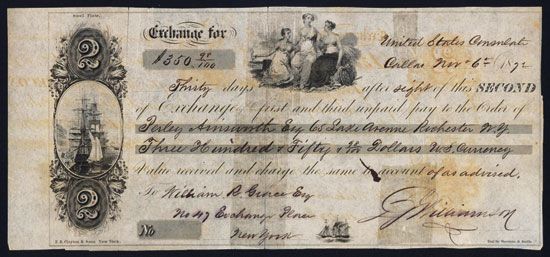 Steel Plate.
2
Exchange for
$350 92/100
United States Consulate
Callao Nov 6th 1872
Thirty days after sight of this SECOND
of Exchange, first and third unpaid pay to the Order of
Parley Ainsworth Esq 65 Lake Avenue Rochester N.Y.
Three Hundred & Fifty & 92/100 Dollars U.S. Currency
Value received and charge the same to account of as advised.
To William R Grace Esq
No 47 Exchange Place
New York
No
2
E.B. Clayton & Sons New York.